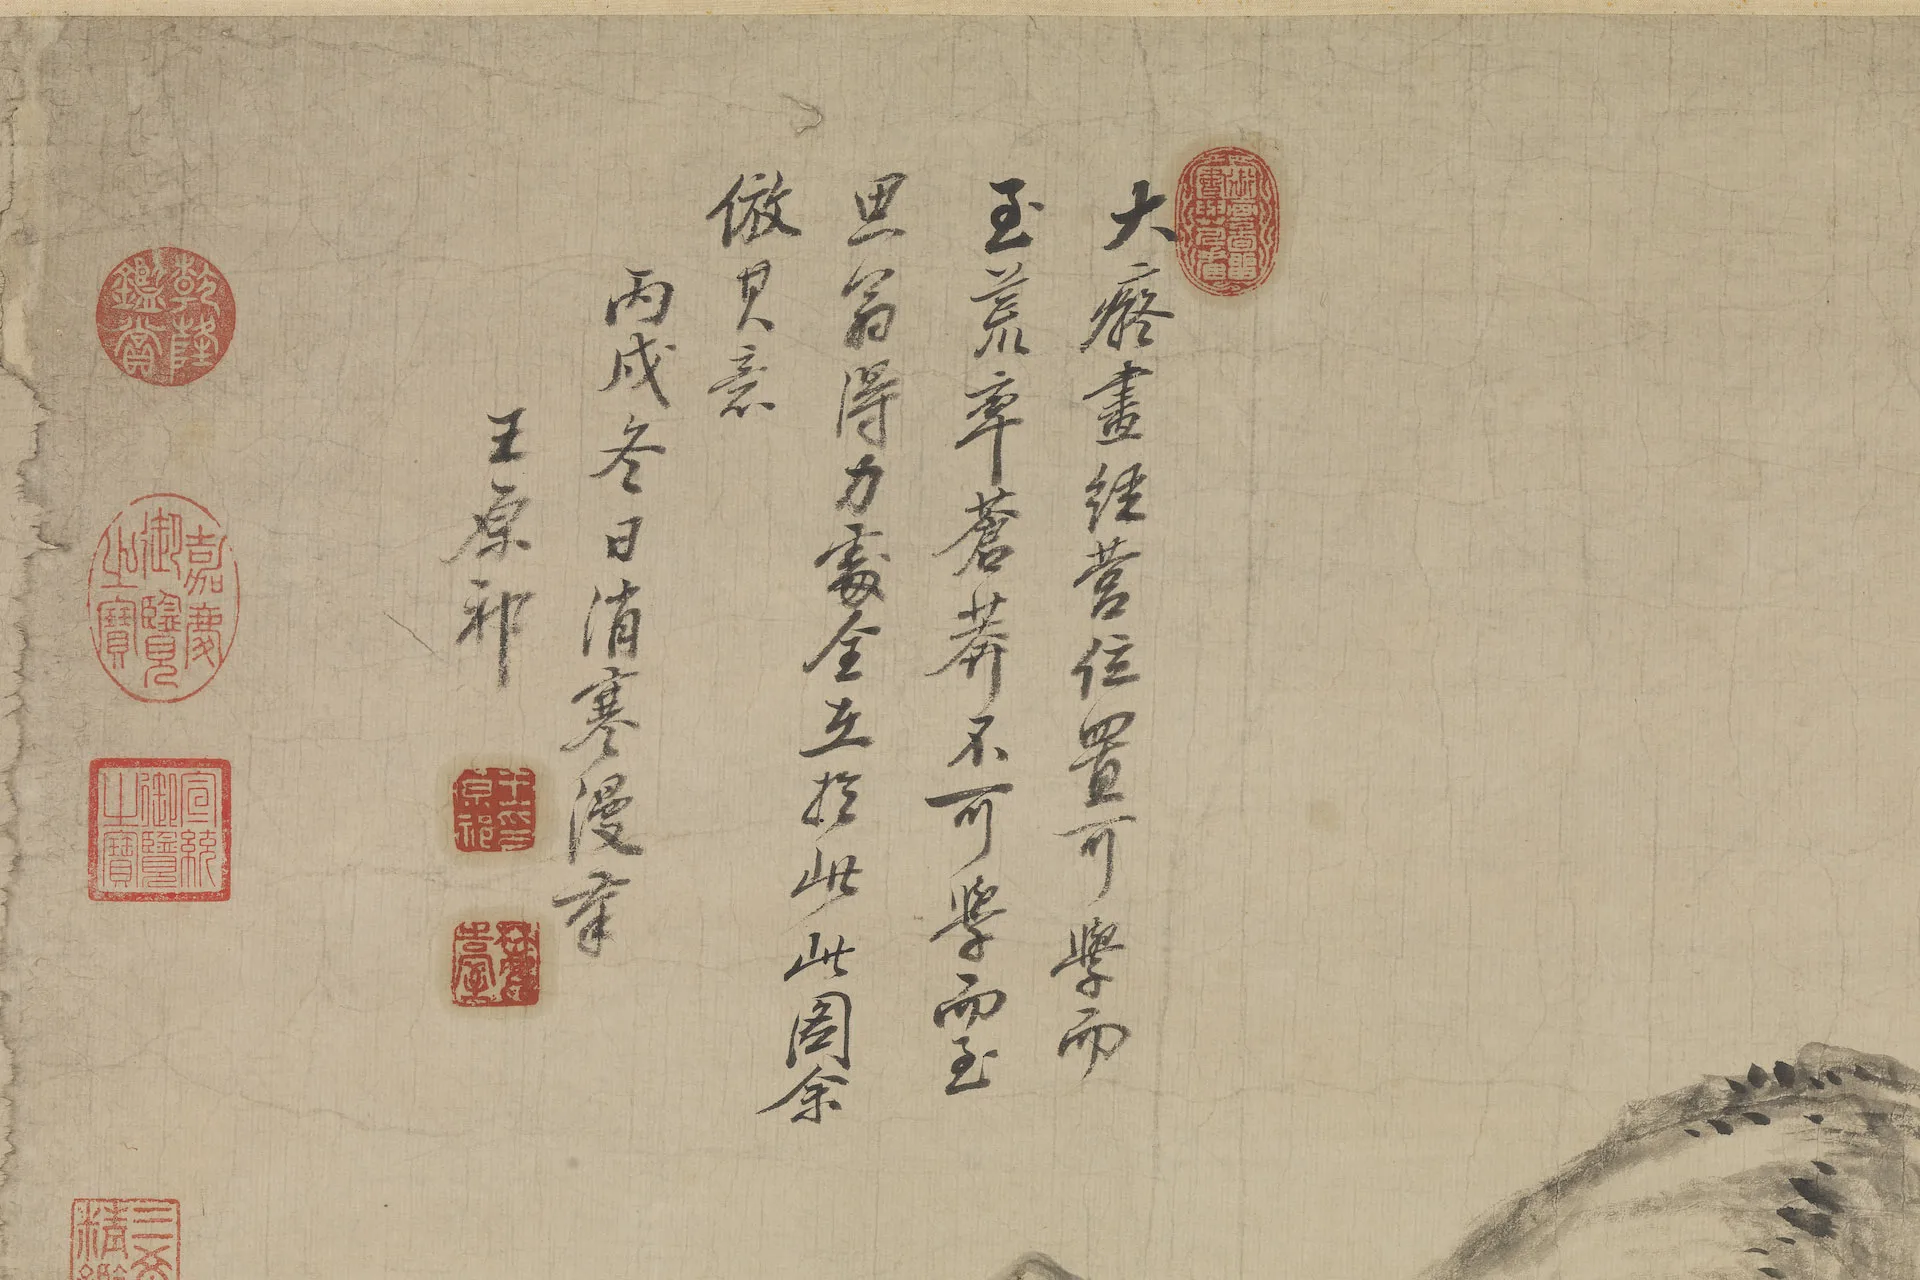 大癡畫經營位置可學而
至荒率蒼莽不可學而至
思翁得力處全在於此此圖余
倣其意
丙戌冬日消寒漫筆
王原祁
乾隆鑑賞
嘉慶御覽之寶
宣統御覽之寶
王原祁印
麓臺
三希
精鑑